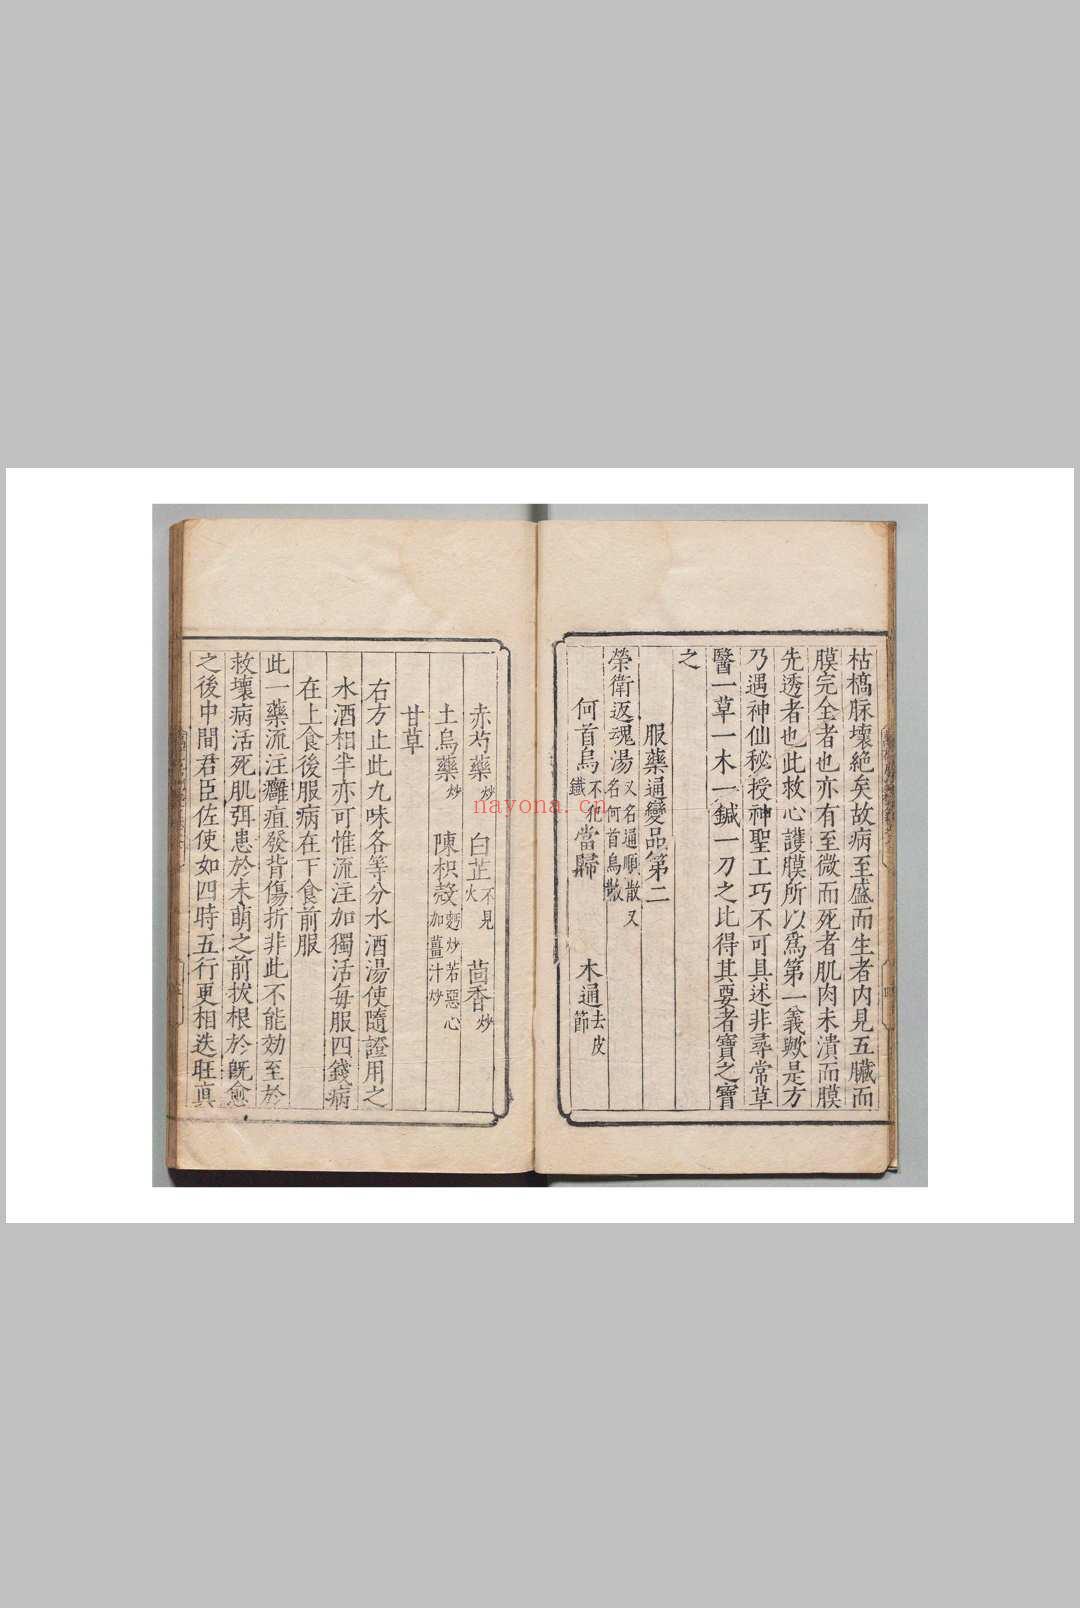 枯槁脉壞絶矣故病至盛而生者内見五臟而
膜完全者也亦有至微而死者肌肉未潰而膜
先透者也此救心護膜所以爲第一義歟是方
乃遇神仙秘授神聖工巧不可具述非尋常草
醫一草一木一鍼一刀之比得其要者寶之寶
之
服藥通變品第二
榮衛返魂湯又名通順散又名何首烏散
何首烏不犯鐵 當歸 木通去皮節
赤芍藥炒 白芷不見火 茴香炒
土烏藥炒 陳枳殼麪炒若惡心加薑汁炒
甘草
右方止此九味各等分水酒湯使隨證用之
水酒相半亦可惟流注加獨活每服四錢病
在上食後服病在下食前服
此一藥流注癰疽發背傷折非此不能効至於
救壞病活死肌弭患於未萌之前拔根於既愈
之後中間君臣佐使如四時五行更相迭旺真
nayona.cn